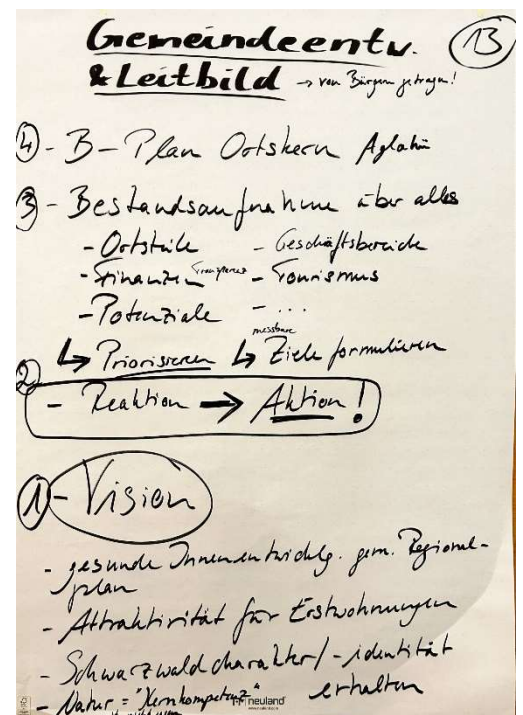 Gemeindeentw. 13
& Leitbild → von Bürgern getragen!
4 - B-Plan Ortskern
3 - Bestandsaufnahme über alles
- Ortsteile - Geschäftsbereiche
- Finanzen Transparenz - Tourismus
- Potenziale - ...
messbare
↳ Priorisieren ↳ Ziele formulieren
2
- Reaktion → Aktion!
1 - Vision
- gesunde Innenentwicklg. gem. Regional-
plan
- Attraktivität für Erstwohnungen
- Schwarzwaldcharakter/-identität
erhalten
- Natur = "Kernkompetenz"
neuland